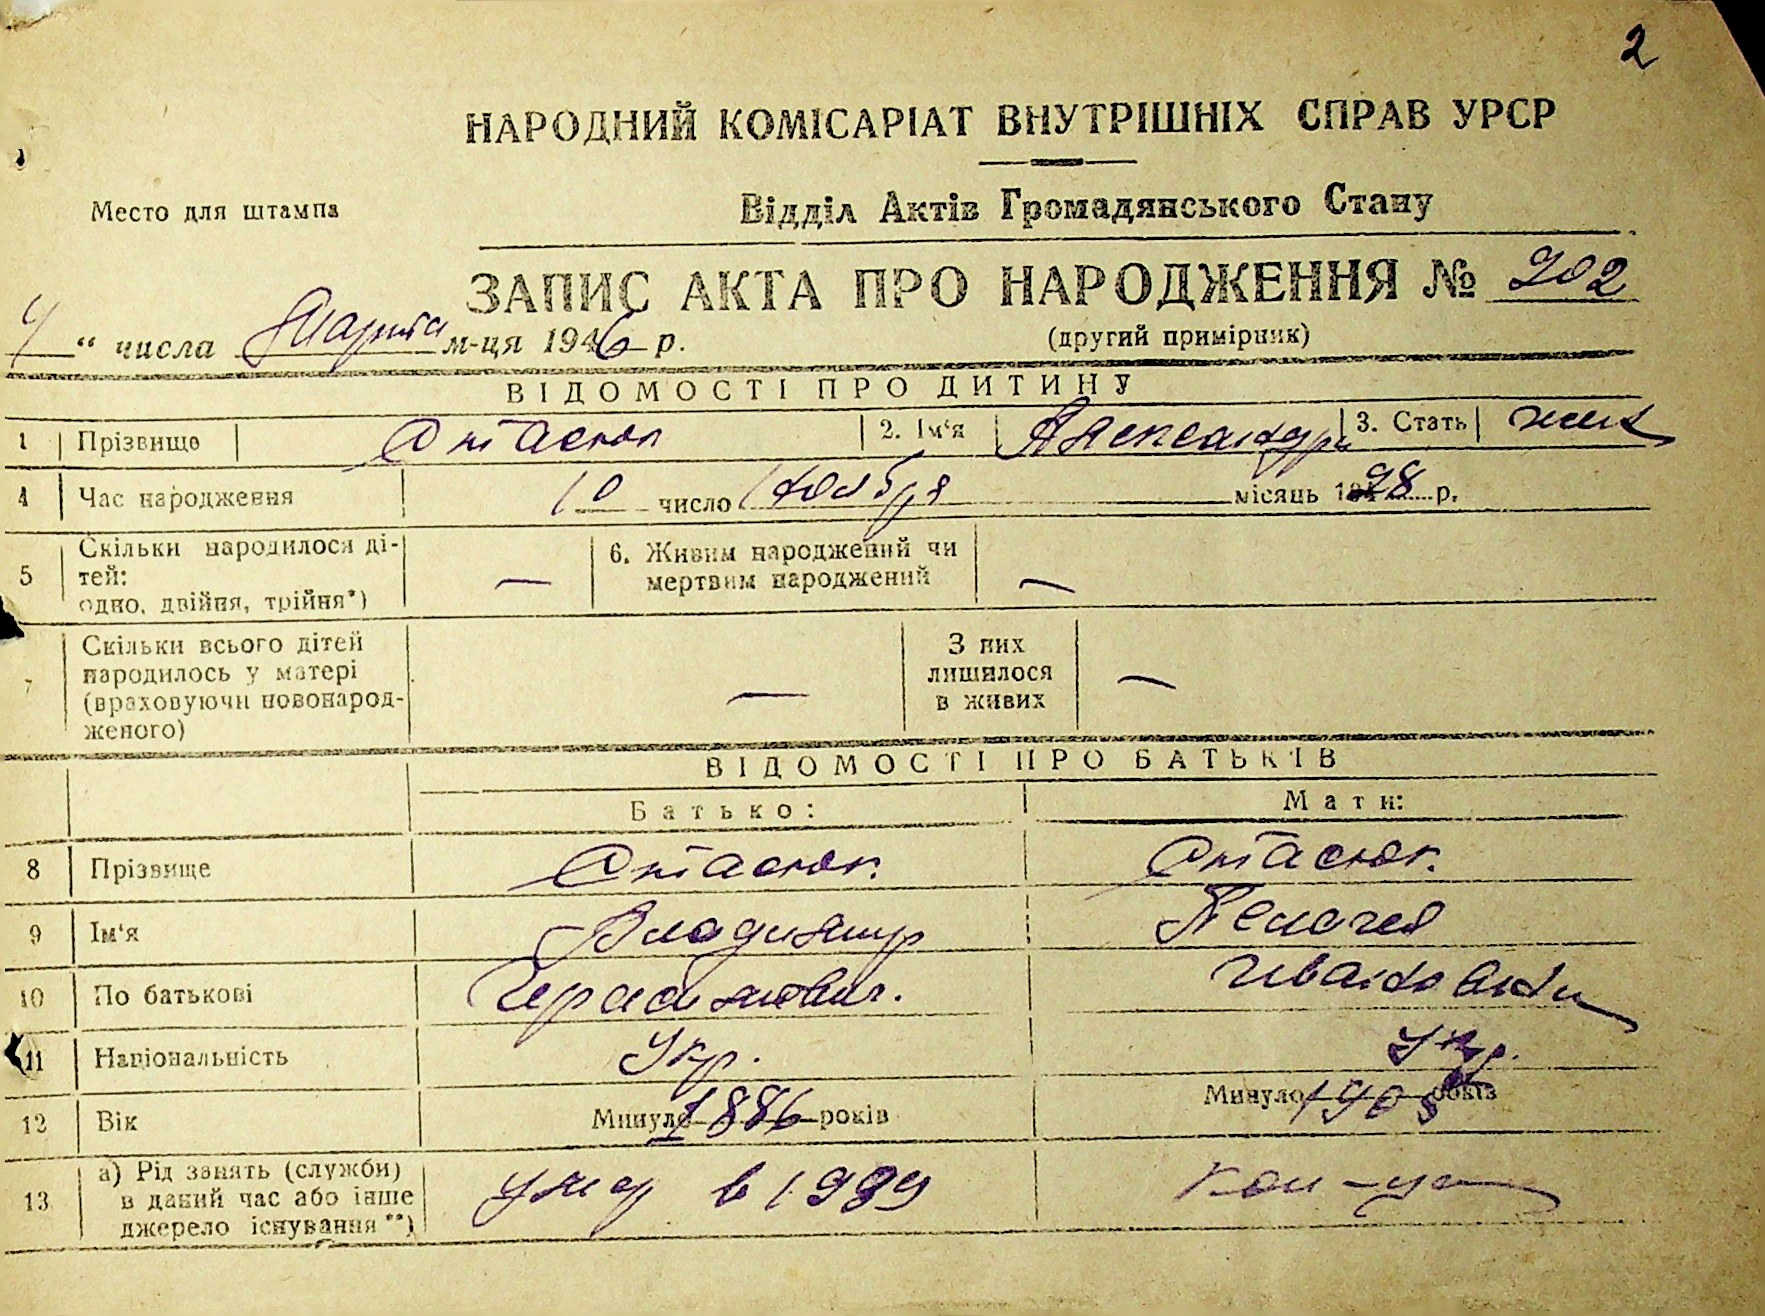 2
НАРОДНИЙ КОМІСАРІАТ ВНУТРІШНІХ СПРАВ УРСР
Место для штампа
Відділ Актів Громадянського Стану
ЗАПИС АКТА ПРО НАРОДЖЕННЯ № 202
(другий примірник)
4 " числа Марта м-ця 1946 р.
ВІДОМОСТІ ПРО ДИТИНУ
1 Прізвище Стасюк 2. Ім'я Александра 3. Стать жен
4 Час народження 10 число Ноября місяць 1928 р.
5 Скільки народилося дітей: одно, двійня, трійня*) — 6. Живим народжений чи мертвим народжений —
7 Скільки всього дітей народилось у матері (враховуючи новонародженого) — З них лишилося в живих —
ВІДОМОСТІ ПРО БАТЬКІВ
Батько: Мати:
8 Прізвище Стасюк. Стасюк.
9 Ім'я Владимир Пелагея
10 По батькові Герасимович. Ивановна
11 Національність Укр. Укр.
12 Вік Минуло 1886 років Минуло 1908 років
13 а) Рід занять (служби) в даний час або інше джерело існування**) умер в 1939